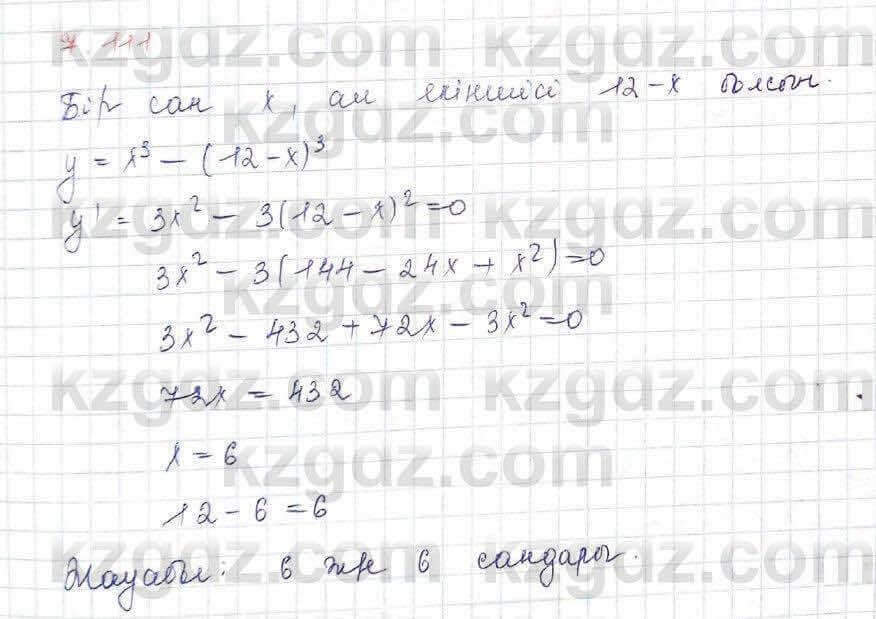 7.111
Бір сан x, ал екіншісі 12-x болсын.
y = x³ - (12-x)³
y' = 3x² - 3(12-x)² = 0
3x² - 3(144 - 24x + x²) = 0
3x² - 432 + 72x - 3x² = 0
72x = 432
x = 6
12 - 6 = 6
Жауабы: 6 ж/е 6 сандары.
kzgdz.com